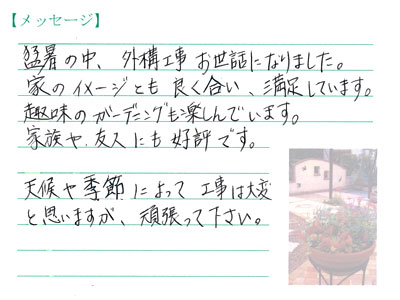 【メッセージ】
猛暑の中、外構工事お世話になりました。
家のイメージとも良く合い、満足しています。
趣味のガーデニングも楽しんでいます。
家族や友人にも好評です。
天候や季節によって工事は大変
と思いますが、頑張って下さい。